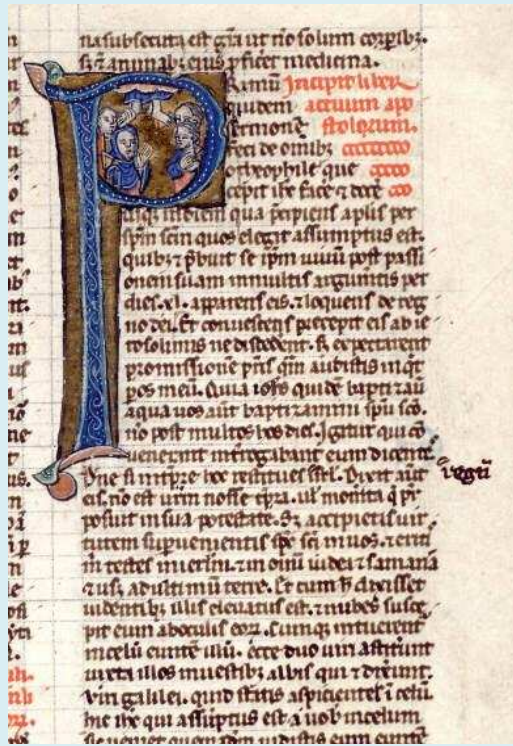 na subsecuta est gr̄a ut nō solum corꝑibꝫ.
sꝫ ⁊ animabꝫ eius ꝓficet medicina.
PRimū Incipit liber
quidem actuum apo
sermonē stolorum.
feci de omībꝫ
o theophile que
cepit ih̄c facͤe ⁊ docͤe
usqꝫ in diem qua p̄cipiens aplis per
sp̄m sc̄m quos elegit assumptus est.
quibꝫ ⁊ p̄buit se ip̄m uiuū post passi
onem suam in multis argumētis per
dies .xl. apparens eis. ⁊ loquens de reg
no dei. Et conuescens precepit eis ab ie
rosolimis ne discederent. sꝫ expectarent
promissionē pr̄is qm̄ audistis inqͥt
ꝑ os meū. Quia ioh̄s quidē baptizauit
aqua uos aūt baptizamini sp̄u sc̄o.
nō post multos hos dies. Igitur qui cō
uenerunt interrogabant eum dicentes
Dn̄e si in tp̄re hoc restitues isr̄l. Dixit aūt regnū
eis. nō est ur̄m nosse tp̄ra. ul̓ momta q̄ pr̄
posuit in sua potestate. Sꝫ accipietis uir
tutem supuenientis sp̄c sc̄i in uos. ⁊ eritis
m̄ testes in ierl̄m. ⁊ in oīni iudea ⁊ samaria
⁊ usqꝫ ad ultimū terre. Et cum h̄ dixisset
uidentibꝫ illis eleuatus est. ⁊ nubes susce
pit eum ab oculis eoꝝ. Cumqꝫ intuerent̄
in celū euntē illū. ecce duo uiri astiterunt
iuxta illos in uestibꝫ albis qui ⁊ dixerunt.
Viri galilei. quid statis aspicientes ī celū
hic ih̄c qui assūptus est a uob̄ in celum
sic ueniet quem admodū uidistis eum euntē